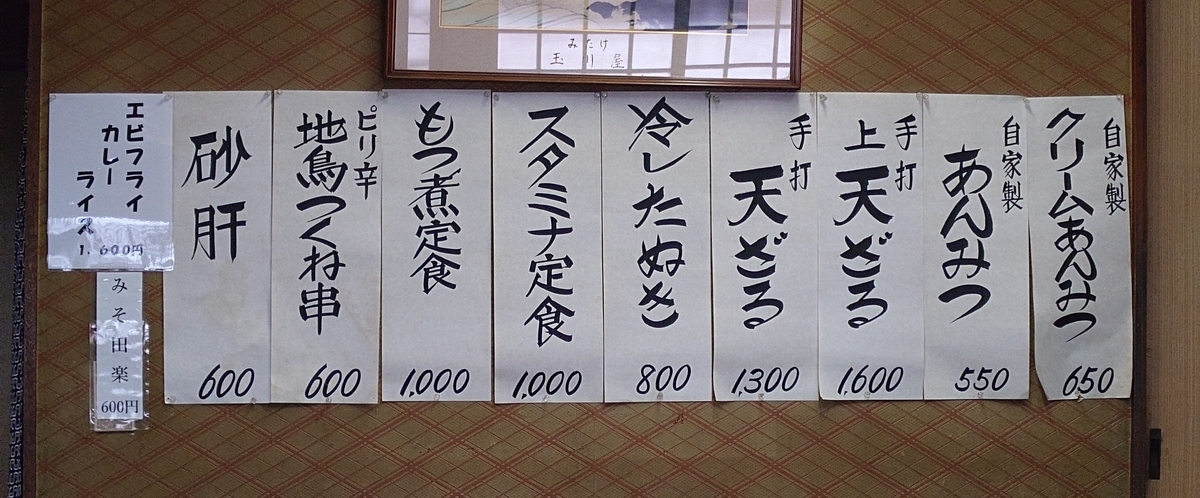 みたけ
玉川屋
自家製
クリームあんみつ
650
自家製
あんみつ
550
手打
上天ざる
1,600
手打
天ざる
1,300
冷したぬき
800
スタミナ定食
1,000
もつ煮定食
1,000
ピリ辛
地鳥つくね串
600
砂肝
600
エビフライ
カレー
ライス
1,600円
みそ田楽
600円